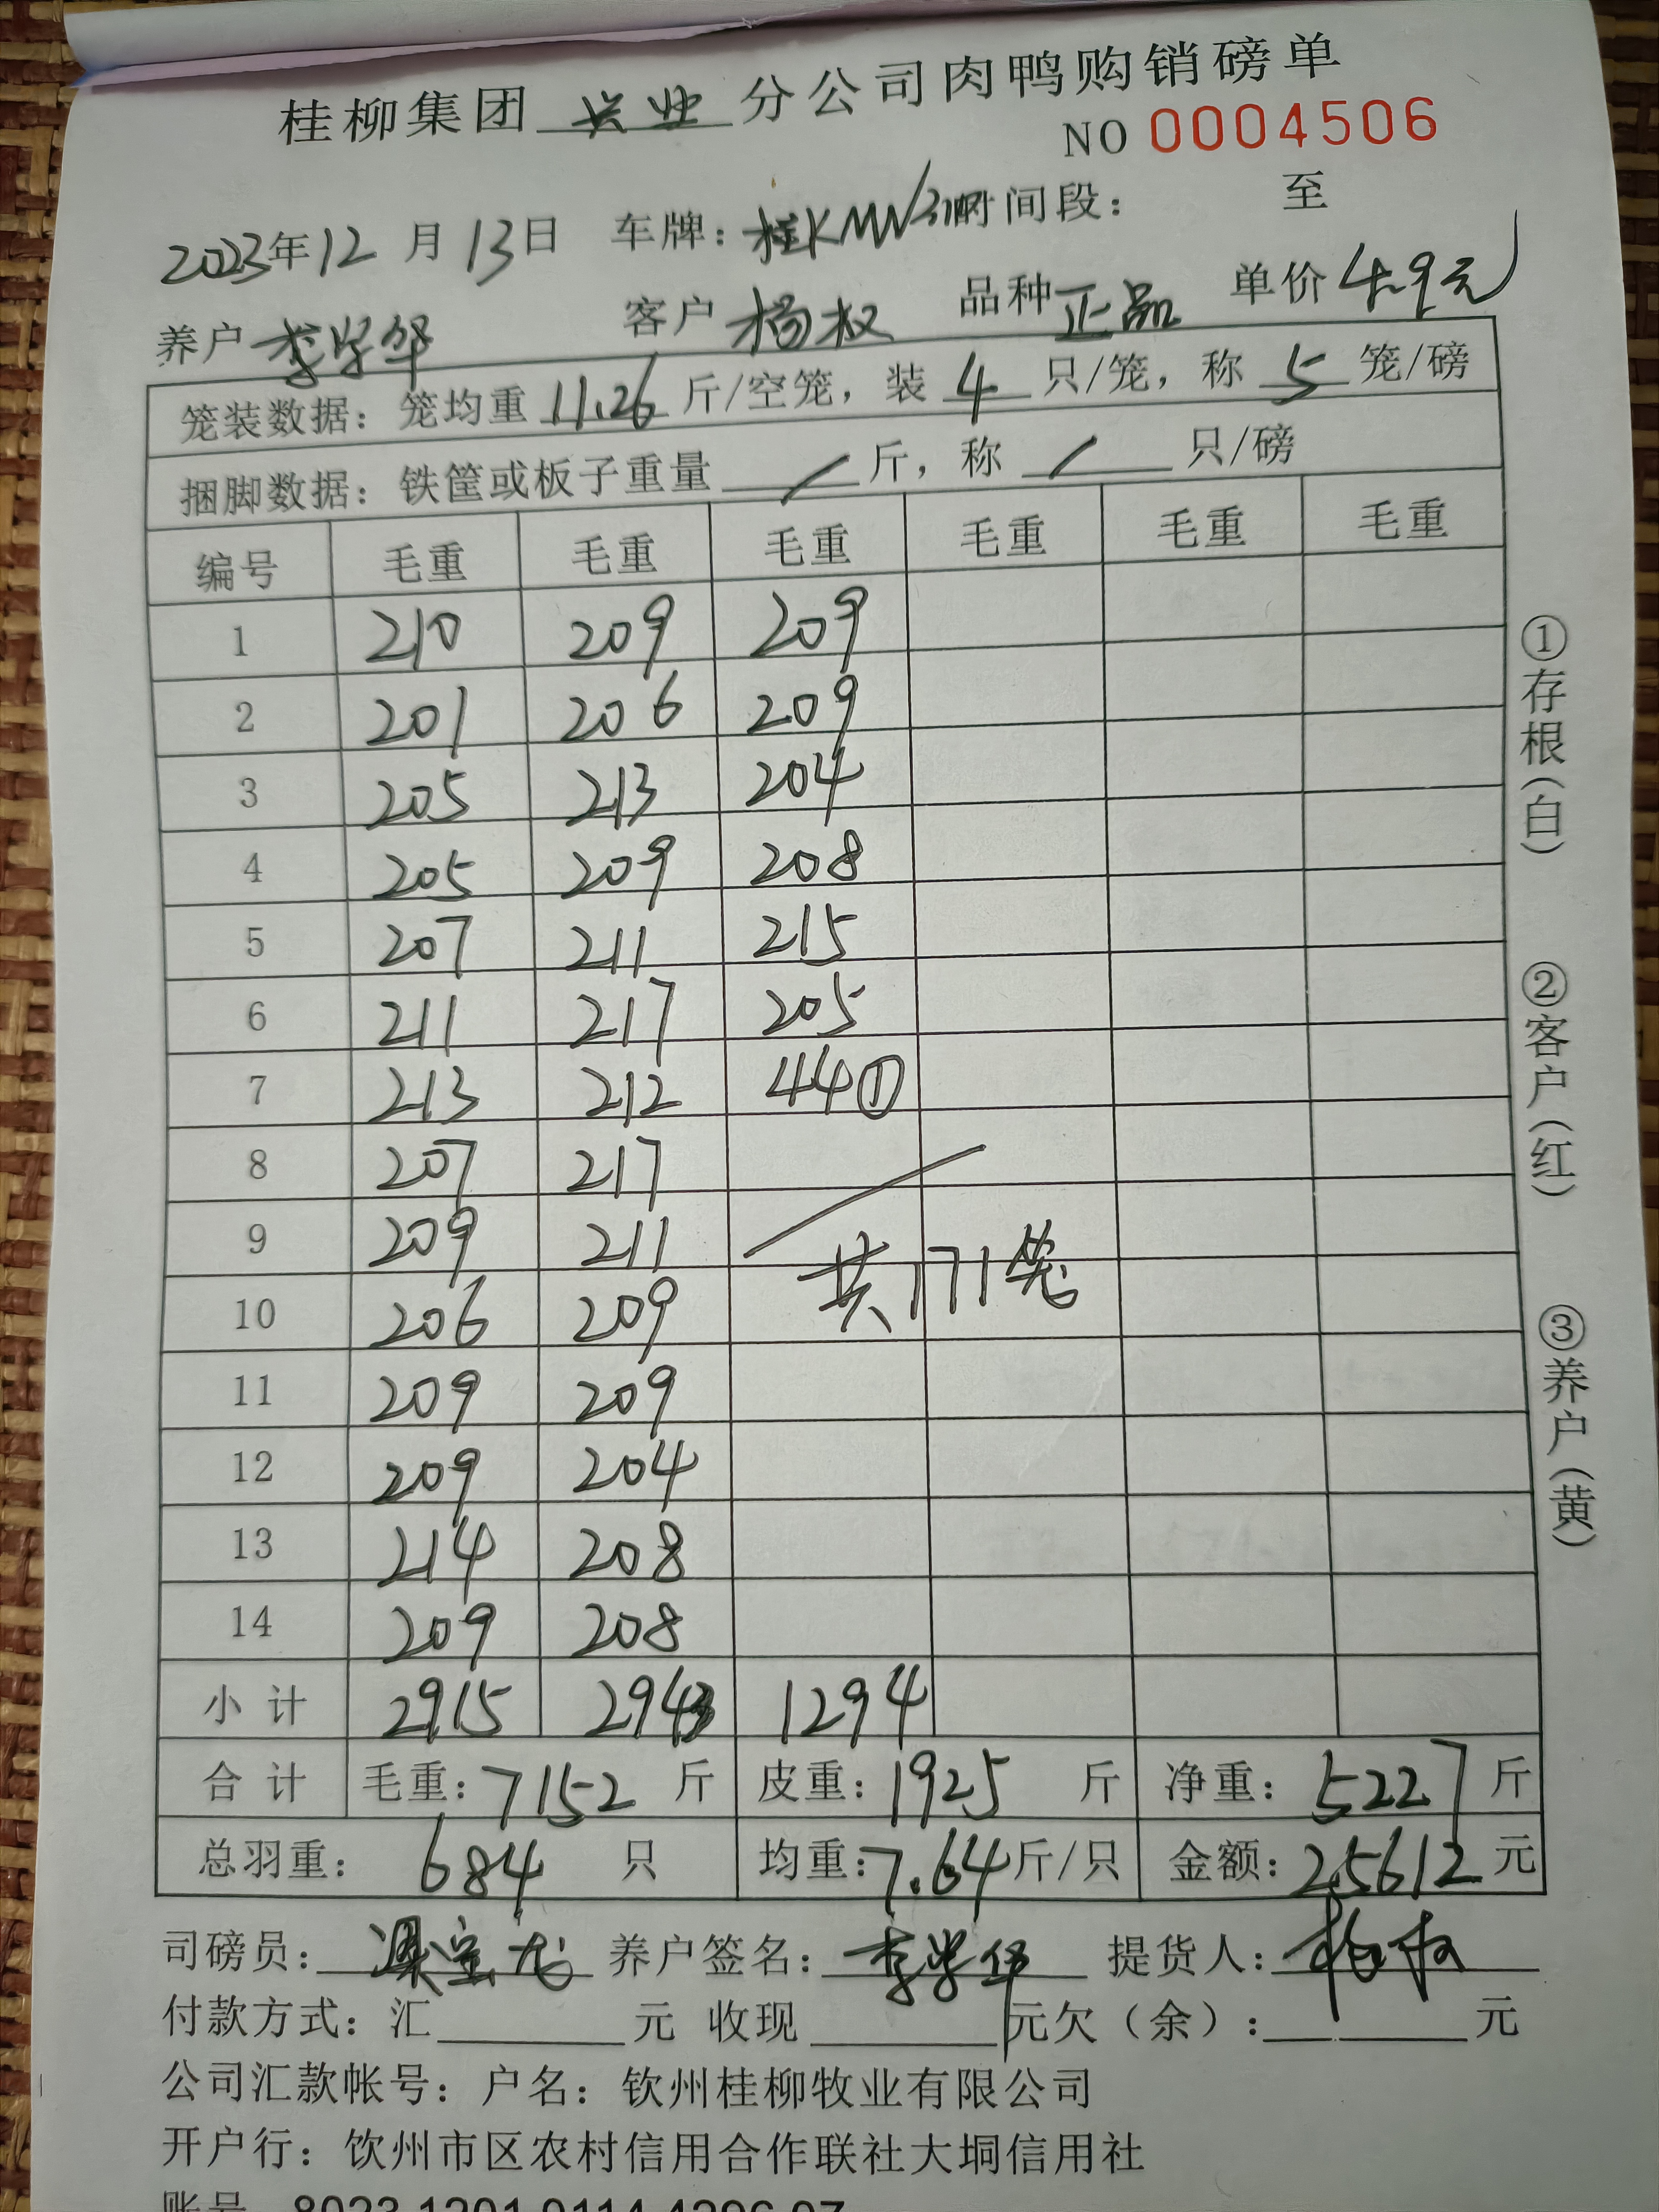 桂柳集团 兴业 分公司肉鸭购销磅单
NO 0004506
2023年12月13日 车牌: 桂K 时间段: 至
养户 李学华 客户 杨权 品种 正品 单价 4.9元
笼装数据: 笼均重 11.26 斤/空笼, 装 4 只/笼, 称 5 笼/磅
捆脚数据: 铁筐或板子重量 / 斤, 称 / 只/磅
编号 毛重 毛重 毛重 毛重 毛重 毛重
1 210 209 209
2 201 206 209
3 205 213 204
4 205 209 208
5 207 211 215
6 211 217 205
7 213 212 44①
8 207 217
9 209 211
共171笼
10 206 209
11 209 209
12 209 204
13 214 208
14 209 208
小计 2915 2943 1294
合计 毛重: 7152 斤 皮重: 1925 斤 净重: 5227 斤
总羽重: 684 只 均重: 7.64 斤/只 金额: 25612 元
司磅员: 养户签名: 李学华 提货人: 杨权
付款方式: 汇 元 收现 元欠(余): 元
公司汇款帐号: 户名: 钦州桂柳牧业有限公司
开户行: 饮州市区农村信用合作联社大垌信用社
账号 8023 1201 0114 4296 07
①存根(白)
②客户(红)
③养户(黄)